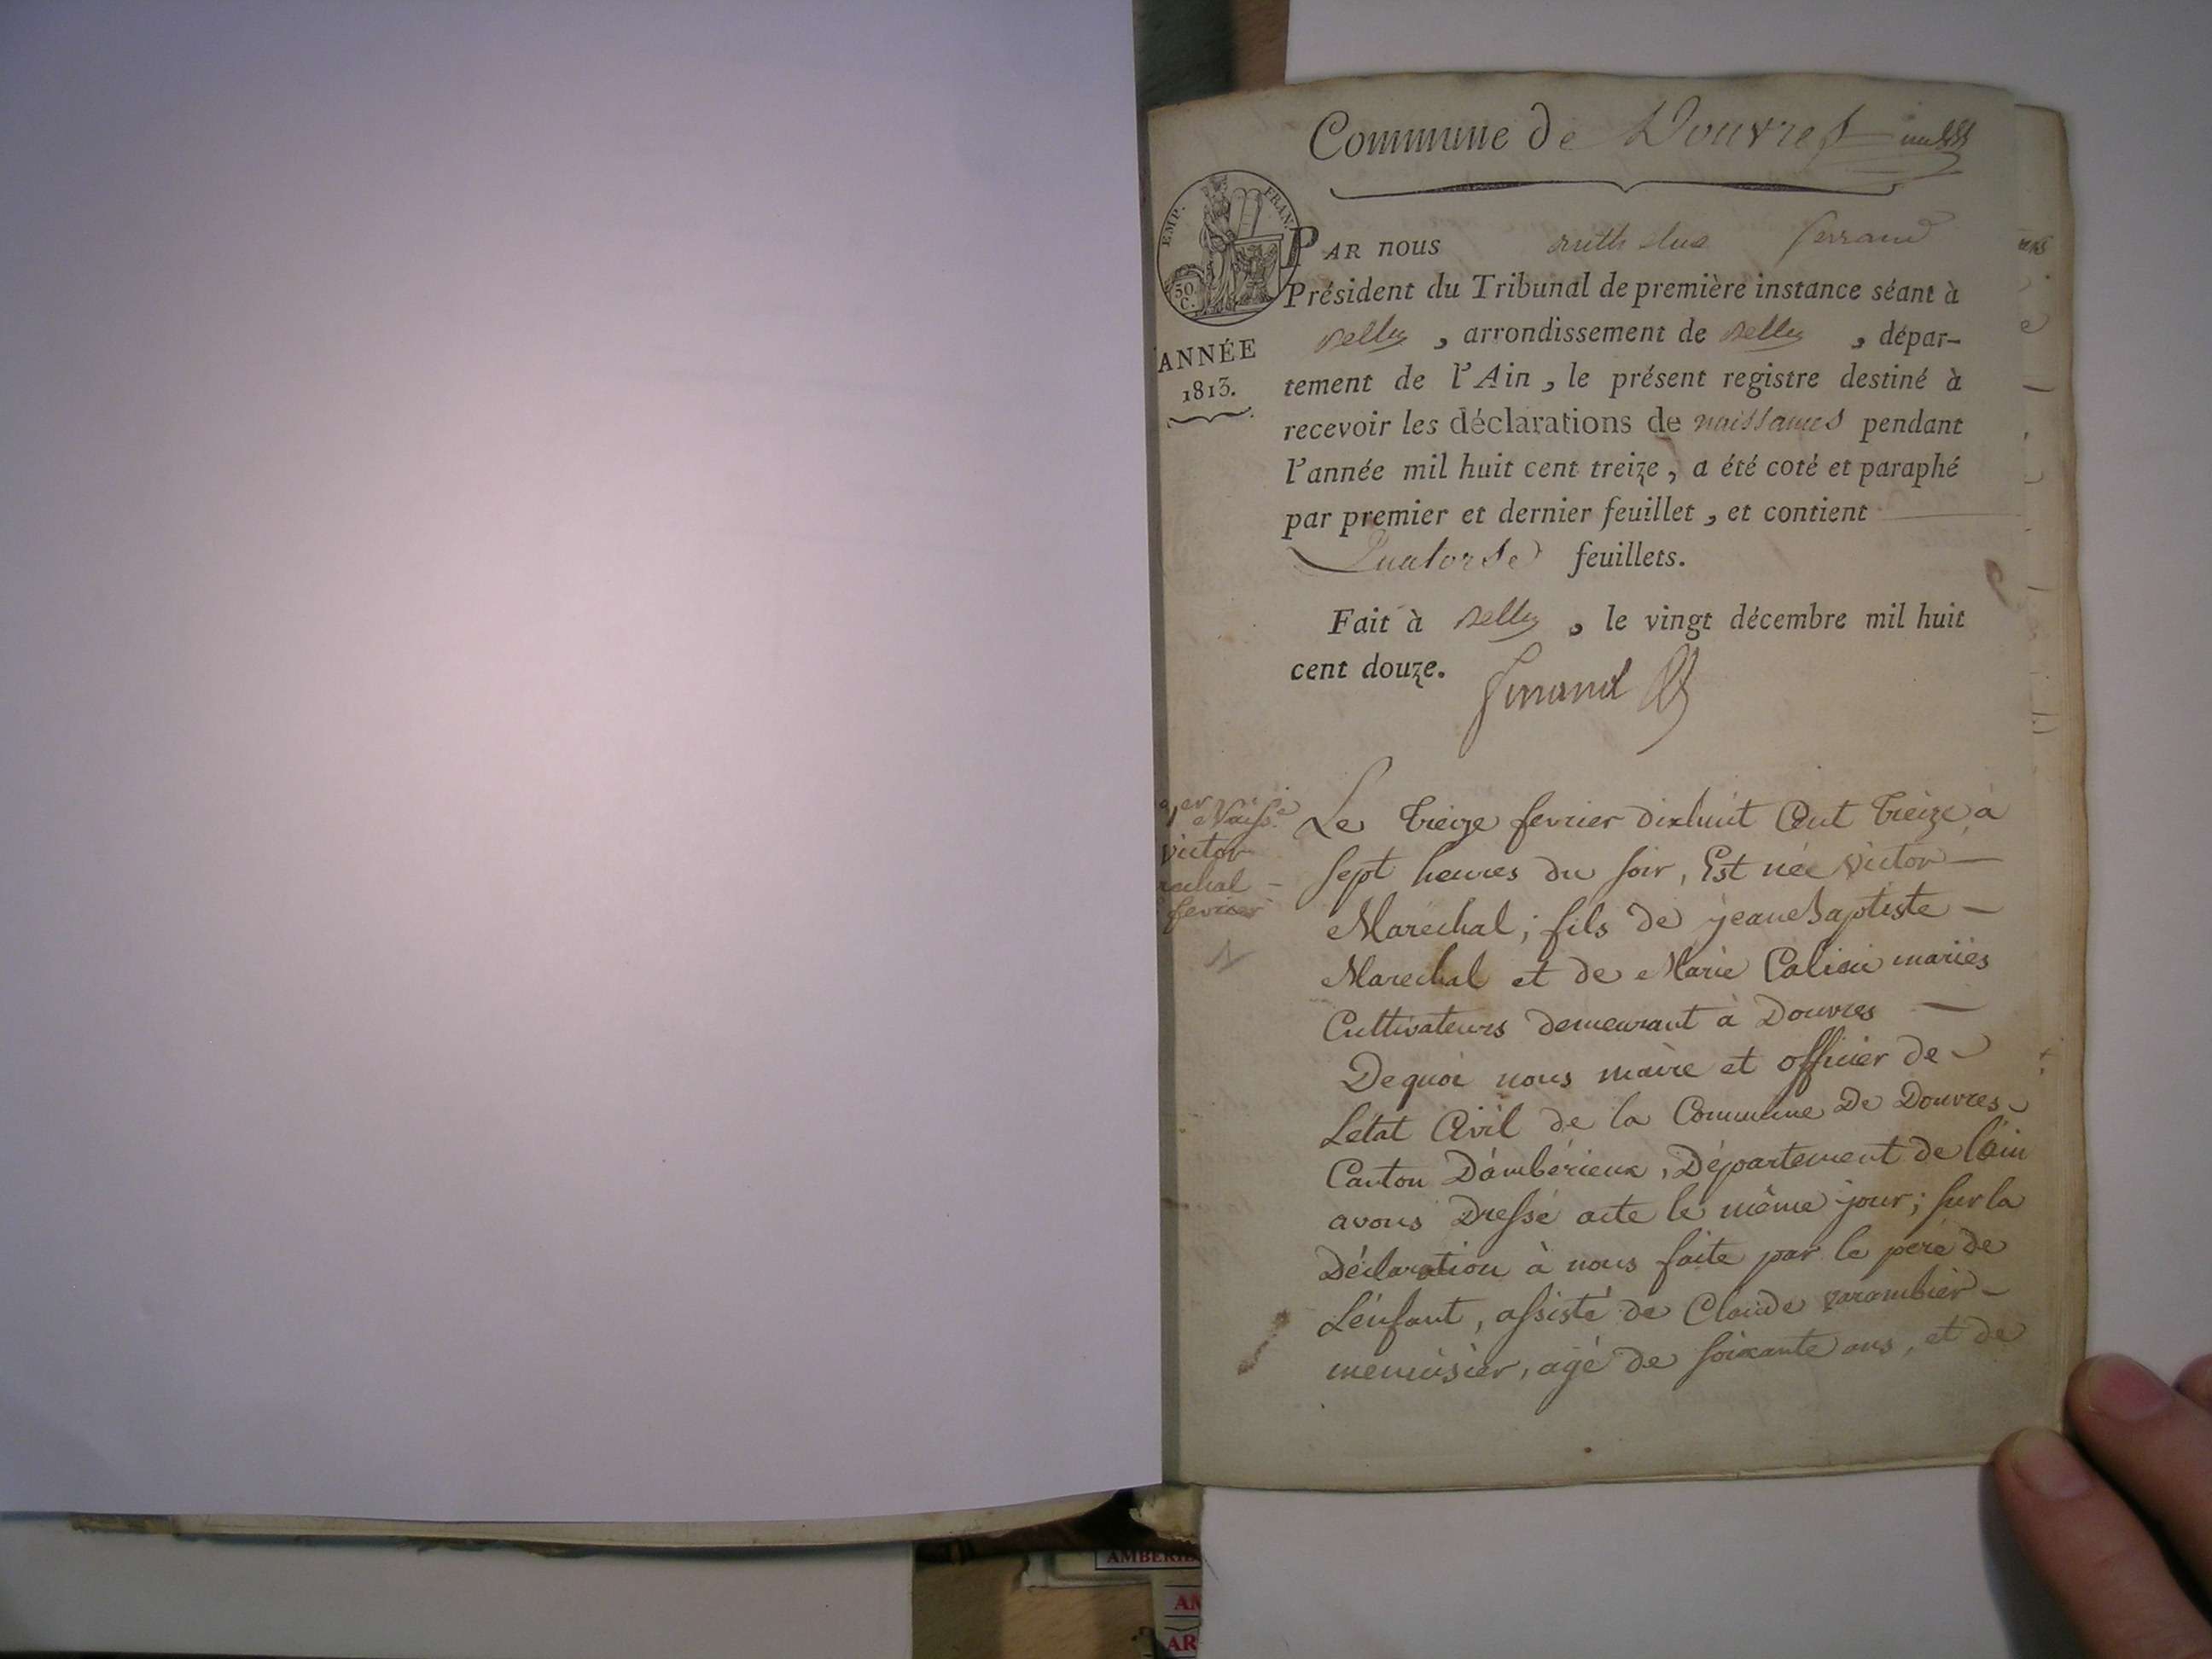 Commune de Douvres
EMP. FRAN.
50 C.
PAR nous anthelme ferrand
Président du Tribunal de première instance séant à
Belley, arrondissement de Belley, dépar-
ANNÉE
1813.
tement de l'Ain, le présent registre destiné à
recevoir les déclarations de naissances pendant
l'année mil huit cent treize, a été coté et paraphé
par premier et dernier feuillet, et contient
Quatorse feuillets.
Fait à Belley, le vingt décembre mil huit
cent douze.
ferrand
1er Naisse
victor
rechal
fevrier
1
Le treize fevrier dixhuit Cent treize à
sept heures du soir, Est née victor
Maréchal; fils de jeanebaptiste
Marechal et de Marie mariés
Cultivateurs demeurant à Douvres
Dequoi nous maire et officier de
Létat Civil de la Commune De Douvres
Canton D'ambérieux, Département de l'ain
avons Dressé acte le même jour; sur la
Déclaration à nous faite par le père de
L'énfant, assisté de Claude varambier
menuisier, agé de soixante ans, et de
AMBERIE
AM
AR